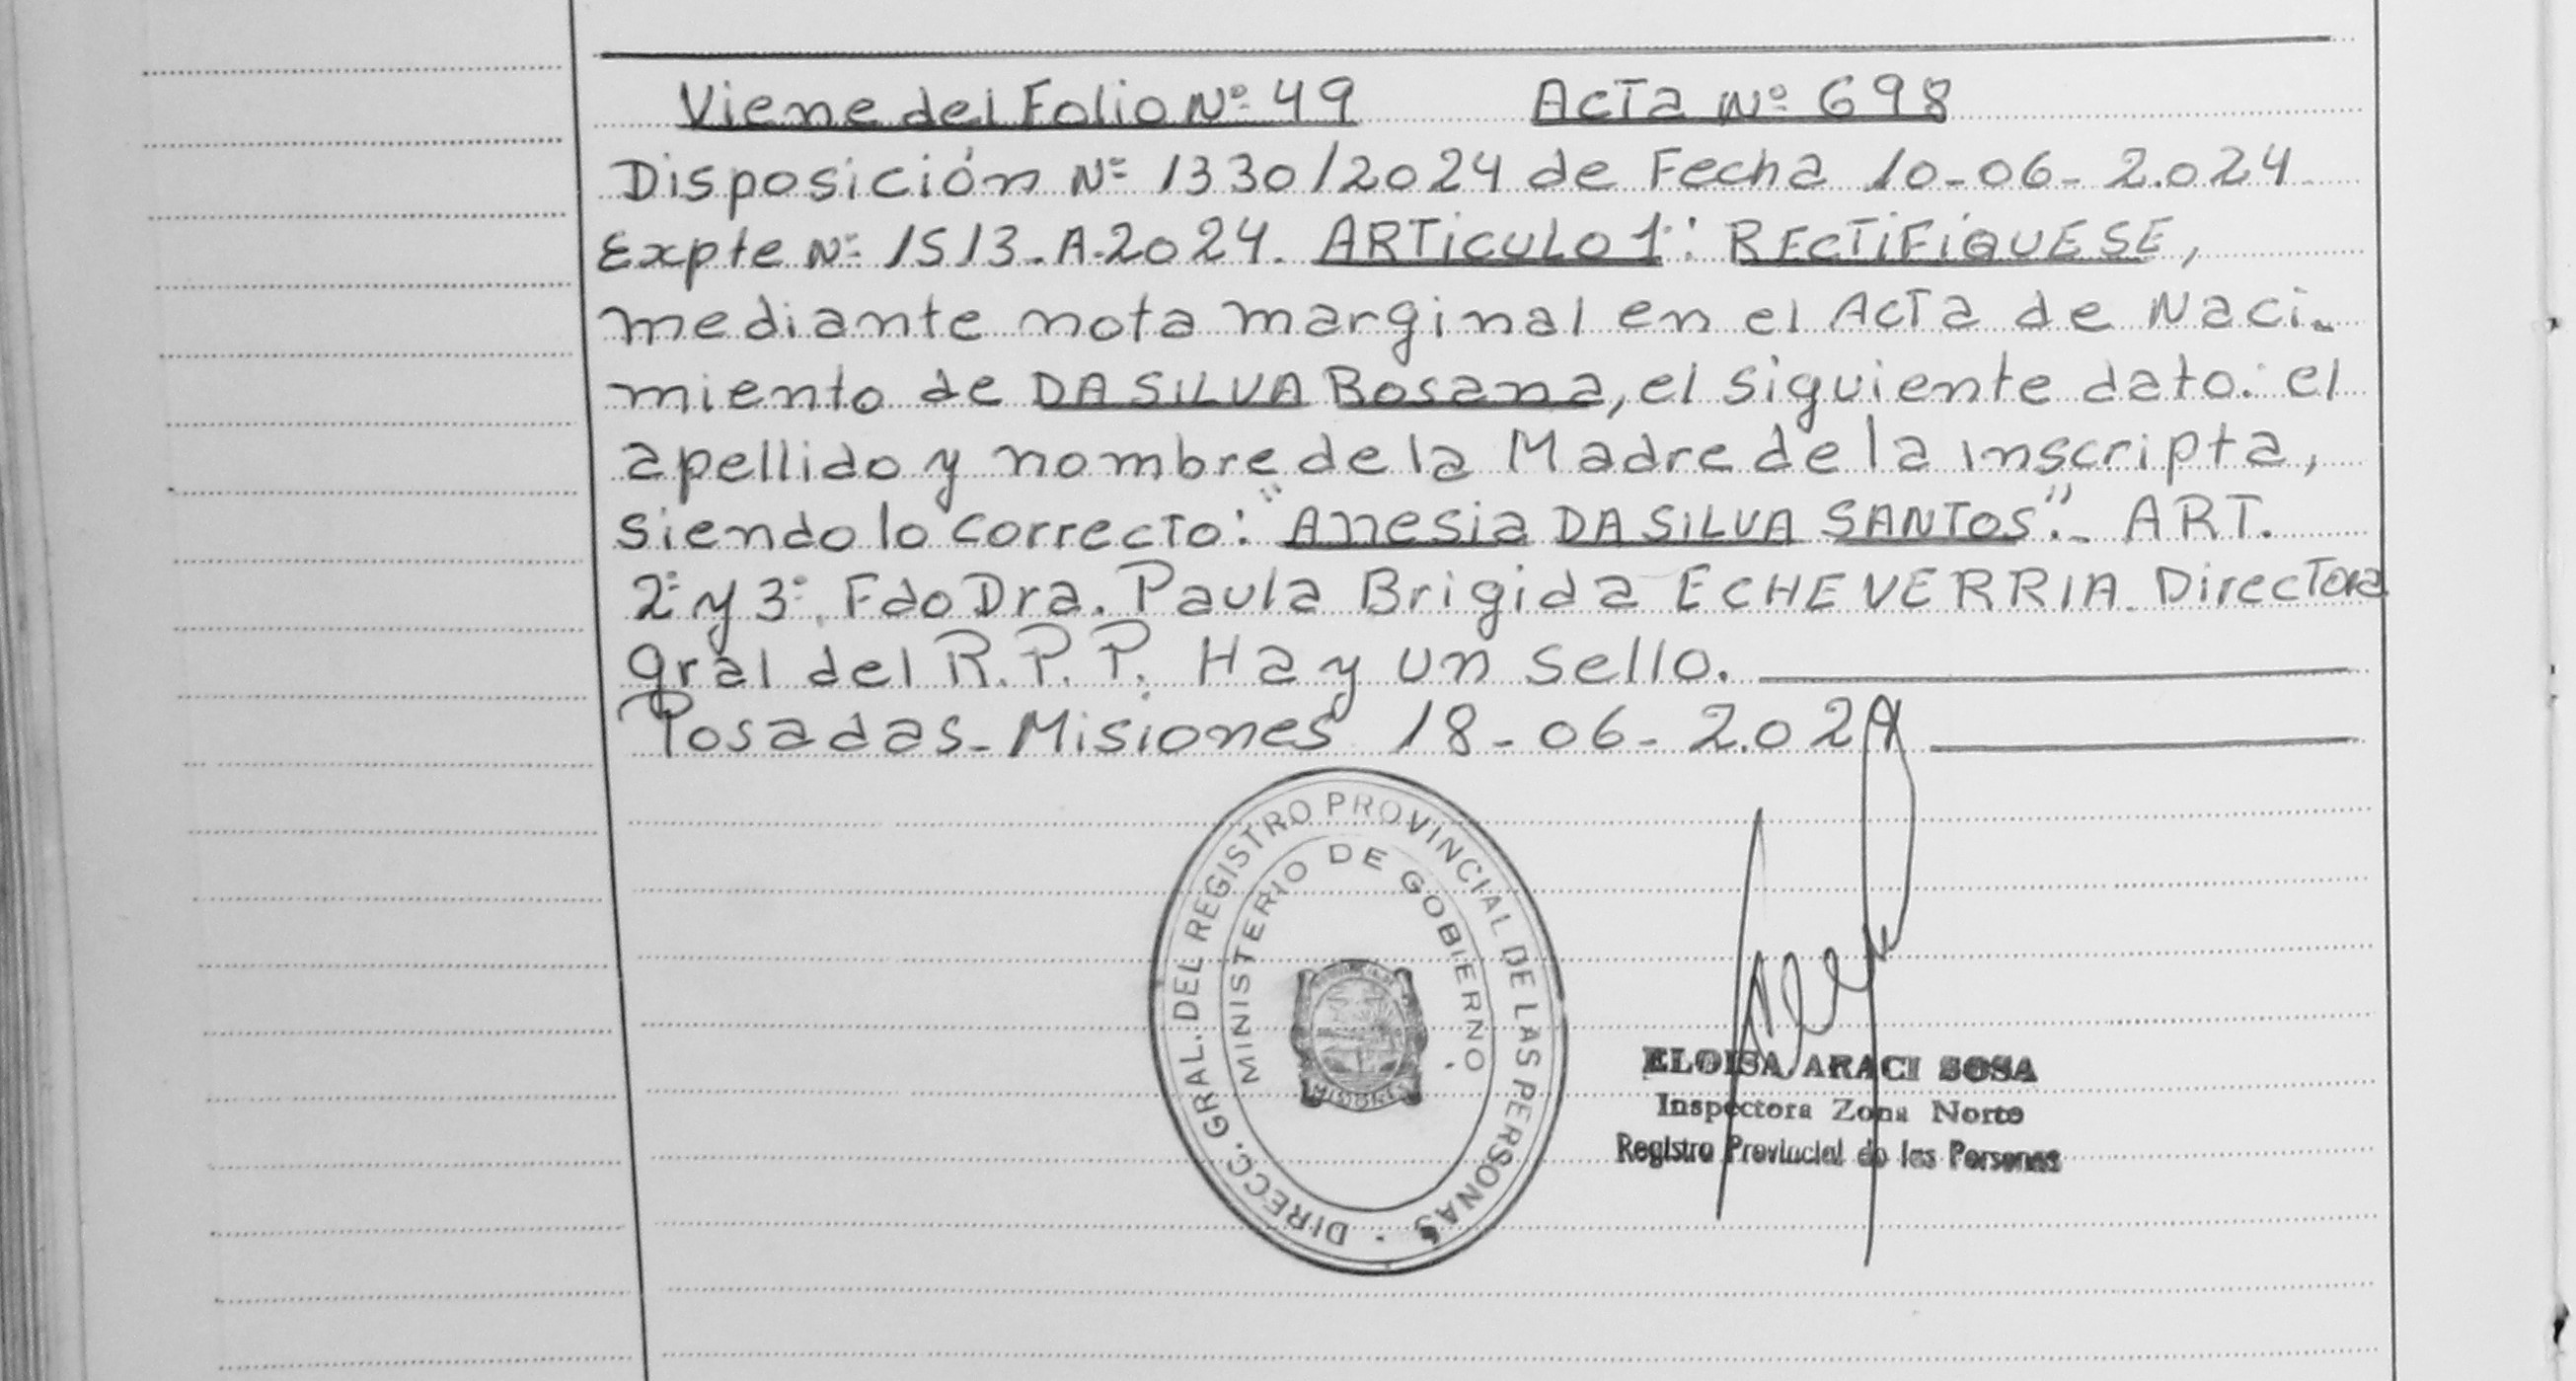 Viene del Folio Nº 49 Acta Nº 698
Disposición Nº 1330/2024 de Fecha 10-06-2.024
Expte Nº 1513-A-2024. ARTiCULO 1º: RECTiFíQUESE,
mediante nota marginal en el Acta de Naci-
miento de DA SiLVA Rosana, el siguiente dato: el
apellido y nombre de la Madre de la inscripta,
siendo lo correcto: "Anesia DA SiLVA SANTOS".- ART.
2º y 3º. Fdo Dra. Paula Brigida ECHEVERRIA. Directora
gral del R.P.P. Hay un sello.
Posadas-Misiones 18-06-2.024
DIRECC. GRAL. DEL REGISTRO PROVINCIAL DE LAS PERSONAS
MINISTERIO DE GOBIERNO
MISIONES
ELOISA ARACI SOSA
Inspectora Zona Norte
Registro Provincial de las Personas